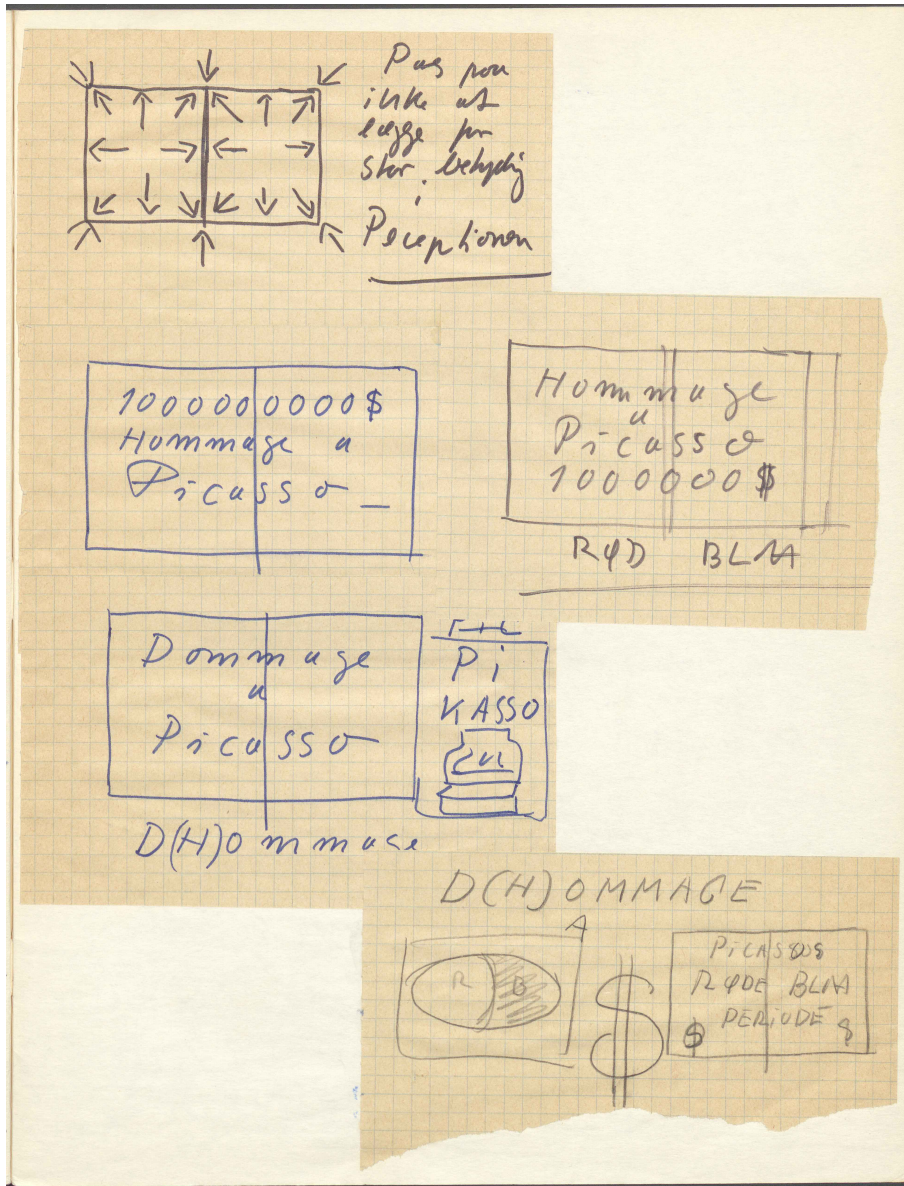 Pas paa
ikke at
lægge for
stor betydning
i
Perceptionen
1000000000$
Hommage a
Picasso
Hommage
a
Picasso
1000000$
RØD BLAA
Dommage
a
Picasso
Pi
KASSO
D(H)ommage
D(H)OMMAGE
A
R B
$
PiCASSOS
RØDE BLAA
PERiODE
$ $